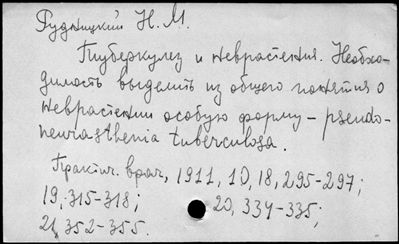 Рудницкий Н. М.
Туберкулез и неврастения. Необхо-
димость выделить из общего понятия о
неврастении особую форму – pseudo-
neurasthenia tuberculosa.
Практич. врач, 1911, 10, 18, 295-297;
19, 315-318; 20, 334-335;
21, 352-355.